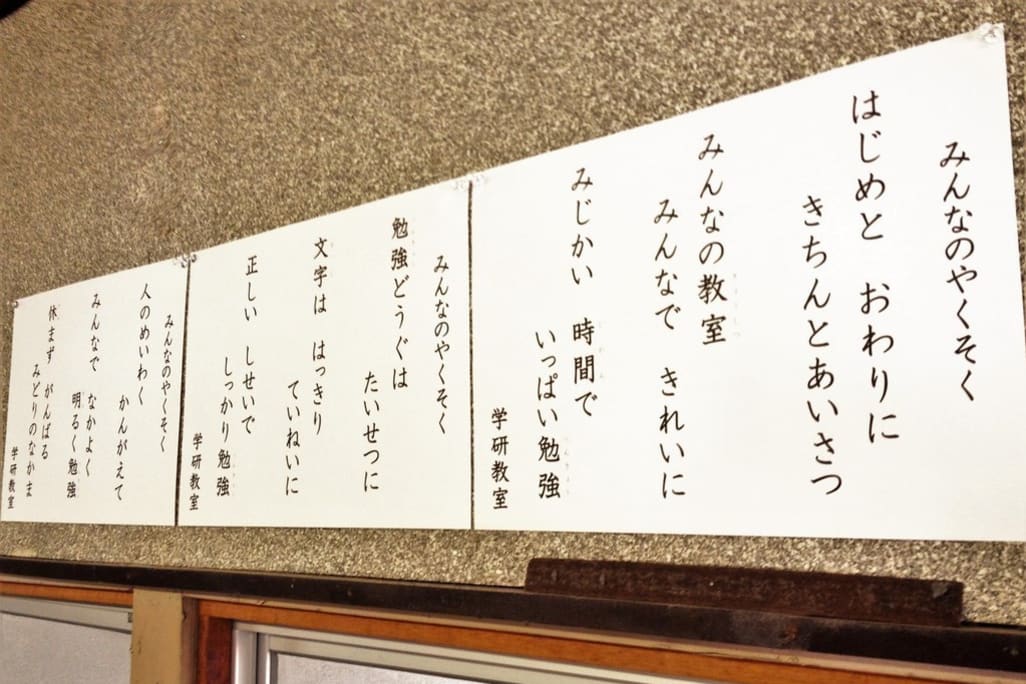 みんなのやくそく
はじめと おわりに
きちんとあいさつ
みんなの教室
みんなで きれいに
みじかい 時間で
いっぱい勉強
学研教室
みんなのやくそく
勉強どうぐは
たいせつに
文字は はっきり
ていねいに
正しい しせいで
しっかり勉強
学研教室
みんなのやくそく
人のめいわく
かんがえて
みんなで なかよく
明るく勉強
休まず がんばる
みどりのなかま
学研教室